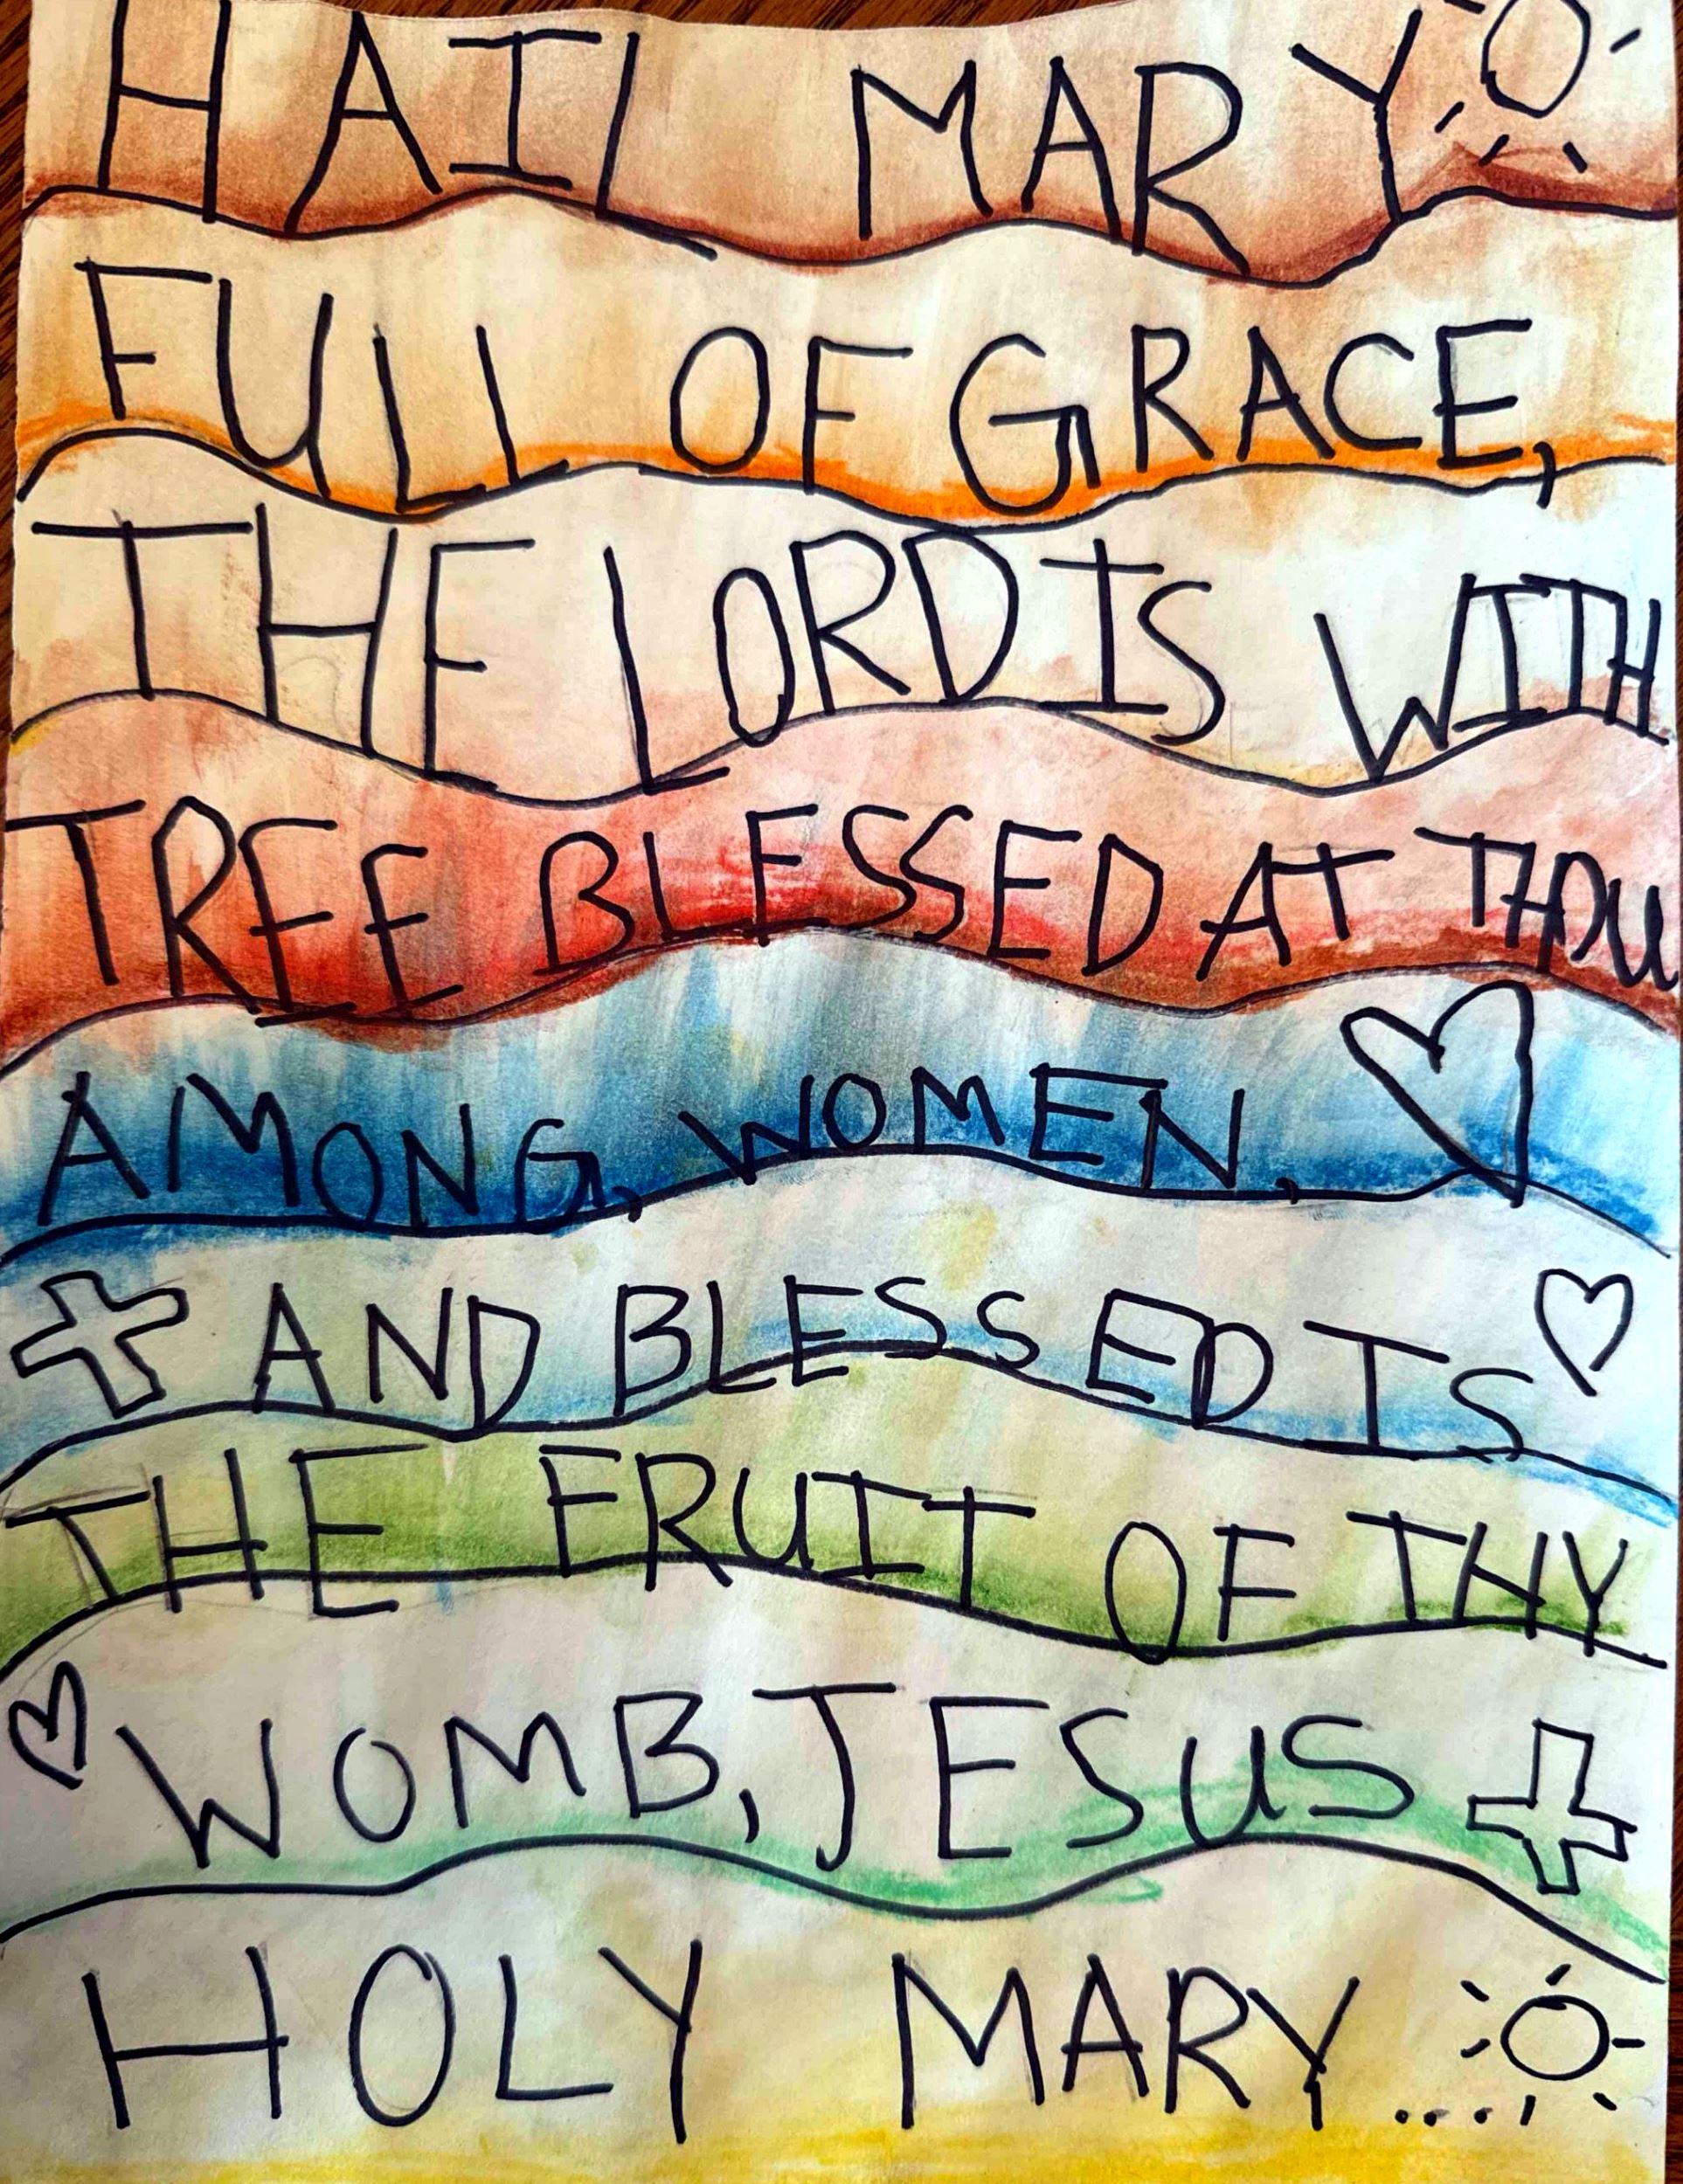 HAIL MARY
FULL OF GRACE,
THE LORD IS WITH
TREE BLESSED AT THOU
AMONG, WOMEN,
AND BLESSED IS
THE FRUIT OF THY
WOMB, JESUS
HOLY MARY....